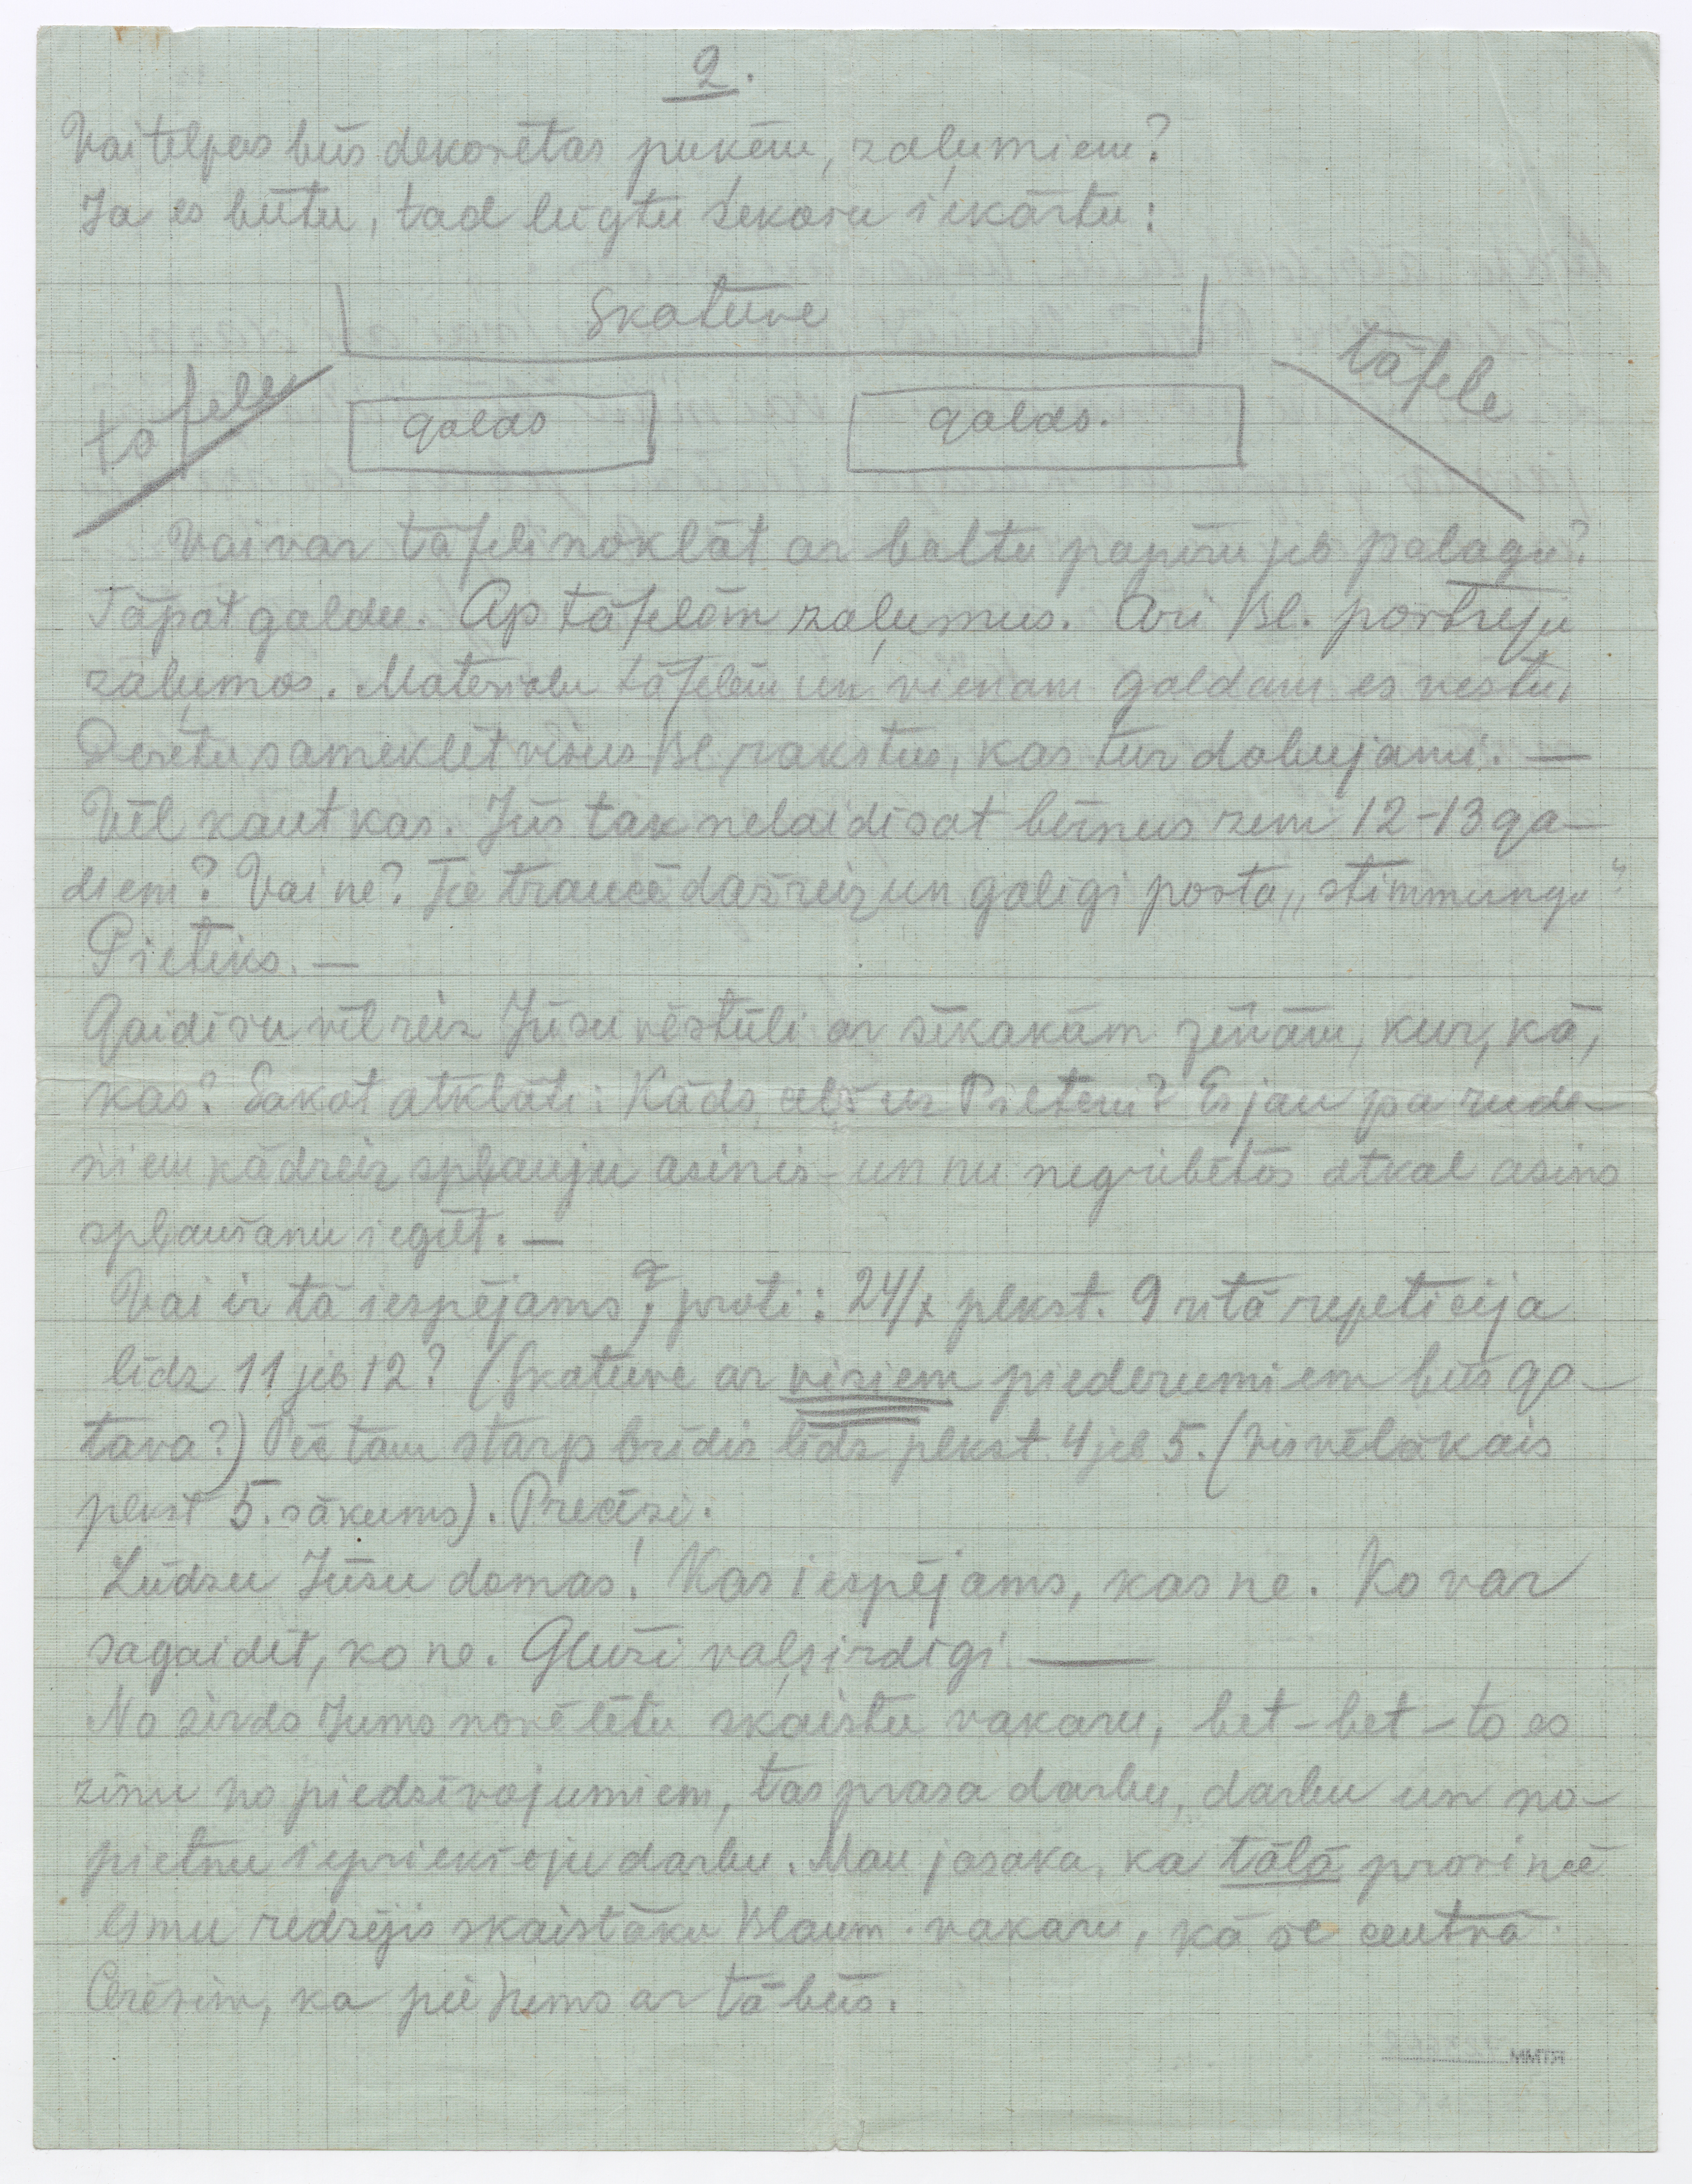 2.
Vai telpas būs dekorētas puķēm, zaļumiem?
Ja es būtu, tad lūgtu sekošu iekārtu:
Skatuve
tāfele
tāfele
galds
galds.
Vai var tāfeli noklāt ar baltu papīru jeb palagu?
Tāpat galdu. Ap tāfelēm zaļumus. Ari Bl. portreju
zaļumos. Materialu tāfelēm un vienam galdam es vestu.
Derētu sameklēt visus Bl. rakstus, kas tur dabujami. —
Vēl kaut kas. Jūs tak nelaidīsat bērnus zem 12-13 ga-
diem? Vai ne? Tie traucē dažreiz un galīgi posta „stimmungu"
Pietiks. —
Gaidīšu vēlreiz Jūsu vēstūli ar sīkakām ziņām, kur, kā,
kas? Sakot atklāti: Kāds ceļš uz Pilteni? Es jau pa rude-
ņiem kādreiz spļauju asinis - un nu negribētos atkal asins
spļaušanu iegūt. —
Vai ir tā iespējams, proti: 24/X plkst. 9 rītā repeticija
līdz 11 jeb 12? (Skatuve ar visiem piederumiem būs ga-
tava?) Pēc tam starpbrīdis līdz plkst. 4 jeb 5. (Visvēlākais
plkst 5. sākums). Precīzi.
Lūdzu Jūsu domas! Kas iespējams, kas ne. Ko var
sagaidīt, ko ne. Gluži vaļsirdīgi. —
No sirds Jums novēlētu skaistu vakaru, bet - bet - to es
zinu no piedzīvojumiem, tas prasa darbu, darbu un no-
pietnu iepriekšeju darbu. Man jasaka, ka tālā provincē
esmu redzējis skaistāku Blaum. vakaru, kā še centrā.
Cerēsim, ka pie Jums ar tā būs.
RTMM